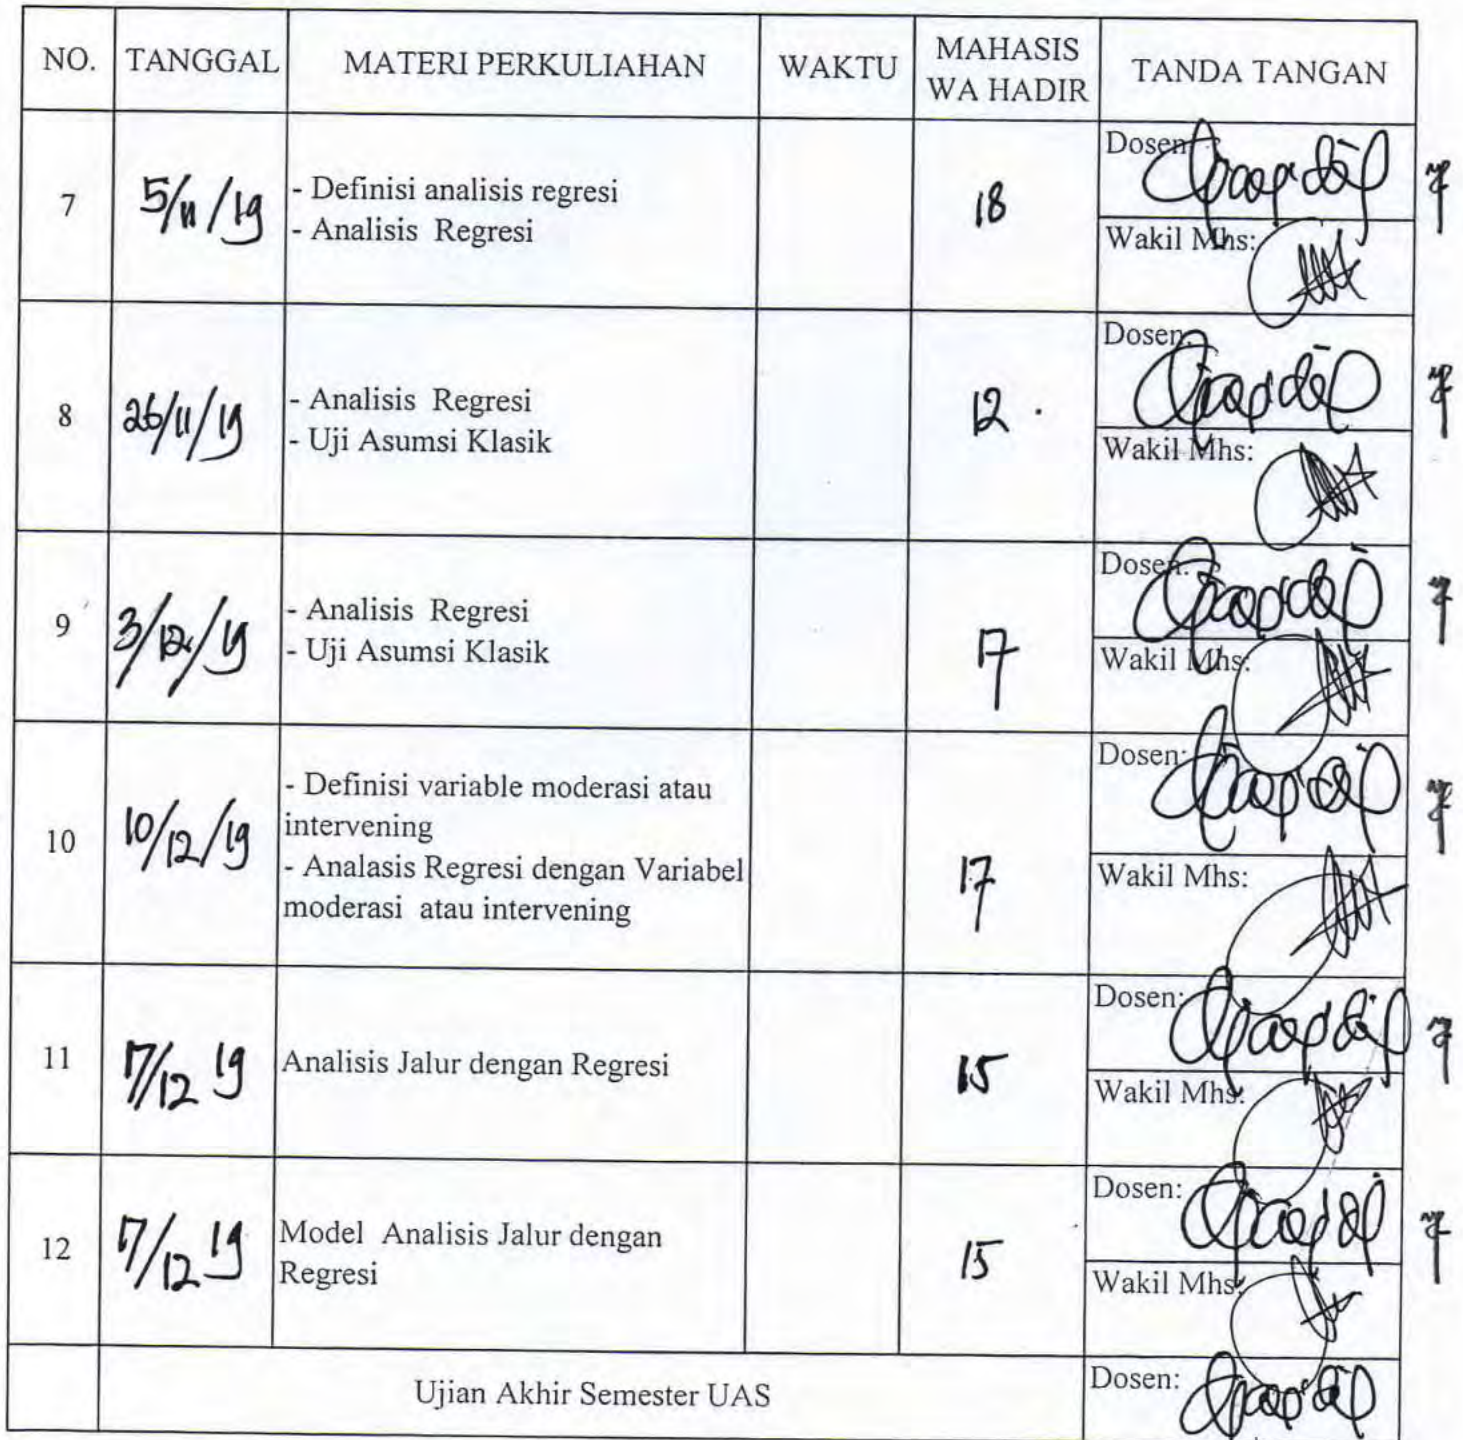 NO. TANGGAL MATERI PERKULIAHAN WAKTU MAHASIS
WA HADIR TANDA TANGAN
7 5/11/19 - Definisi analisis regresi
- Analisis Regresi 18 Dosen:
Wakil Mhs:
8 26/11/19 - Analisis Regresi
- Uji Asumsi Klasik 12 Dosen:
Wakil Mhs:
9 3/12/19 - Analisis Regresi
- Uji Asumsi Klasik 17 Dosen:
Wakil Mhs:
10 10/12/19 - Definisi variable moderasi atau
intervening
- Analasis Regresi dengan Variabel
moderasi atau intervening 17 Dosen:
Wakil Mhs:
11 17/12 19 Analisis Jalur dengan Regresi 15 Dosen:
Wakil Mhs:
12 17/12 19 Model Analisis Jalur dengan
Regresi 15 Dosen:
Wakil Mhs:
Ujian Akhir Semester UAS Dosen: